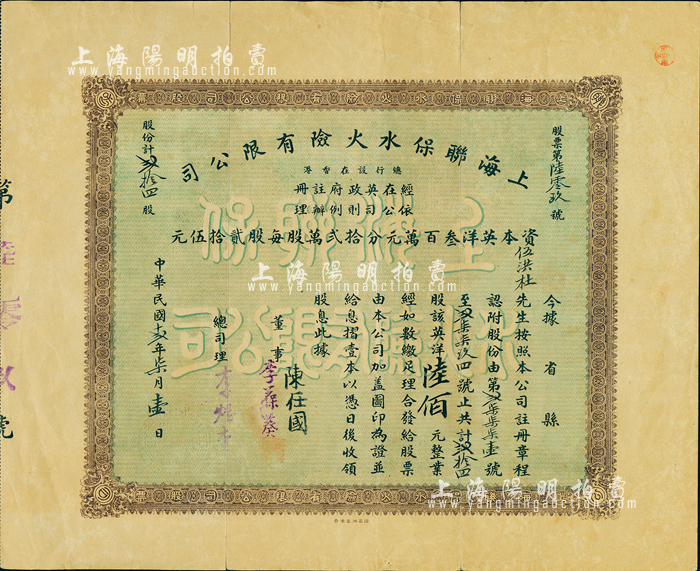 上海陽明拍賣
www.yangmingauction.com
股票第陸零玖號
上海聯保水火險有限公司
總行設在香港
經在英政府註冊
依公司則例辦理
資本英洋叁百萬元分拾弍萬股每股貳拾伍元
股份計弍拾四股
今據 省 縣
伍洪杜先生按照本公司註冊章程
認附股份由第 柒柒柒壹號
至 柒柒玖四號止共計弍拾四
股該英洋陸佰元整業
經如數繳足理合發給股票
由本公司加盖圖印為證並
給息摺壹本以憑日後收領
股息此據
董事 陳任國
李葆葵
總司理
中華民國 年柒月壹日
上海聯保
水火險有限公司
第陸零玖號
上海陽明拍賣
www.yangmingauction.com
上海陽明拍賣
www.yangmingauction.com